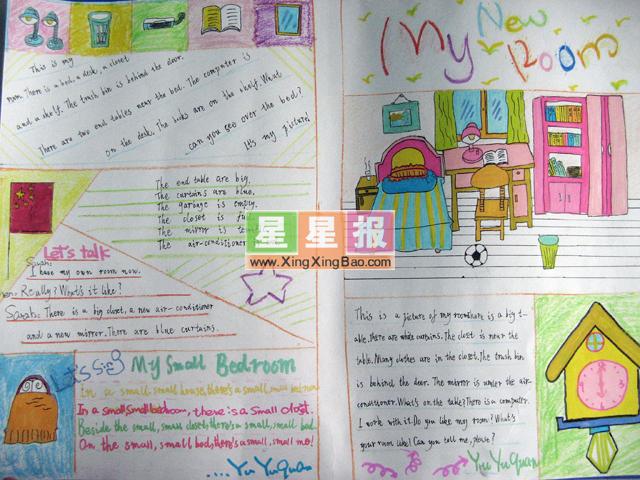 This is my
room. There is a bed, a desk, a closet
and a shelf. The trash bin is behind the door.
There are two end tables near the bed. The computer is
on the desk. The books are on the shelf. What
can you see over the bed?
It's my picture
The end table are big,
The curtains are blue,
The garbage is empty,
The closet is
The mirror is
The air-conditioner
Let's talk
Sarah:
I have my own room now.
Really? What's it like?
Sarah: There is a big closet, a new air-conditioner
and a new mirror. There are blue curtains.
My Small Bedroom
In a small, small house, there's a small, small
In a small, small bedroom, there is a small closet.
Beside the small, small closet, there's a small, small bed.
On the small, small bed, there's a small, small me!
.... Yu YuQuan
My New
Room
星星报
www.XingXingBao.com
This is a picture of my room. There is a big t-
able. there are white curtains. The closet is near the
table. Many clothes are in the closet. The trash bin
is behind the door. The mirror is under the air-
conditioner. What's on the table? There is a computer.
I work with it. Do you like my room? What's
your room like? Can you tell me, please?
Yu YuQuan